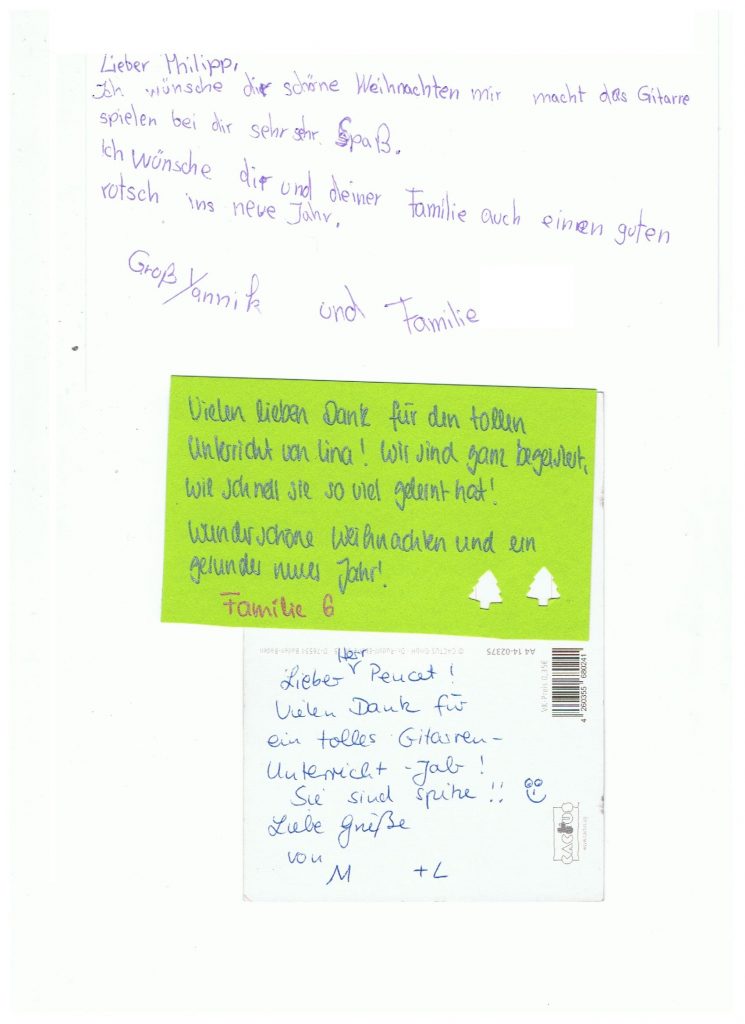 Lieber Philipp,
Ich wünsche dir schöne Weihnachten mir macht das Gitarre
spielen bei dir sehr sehr Spaß.
Ich wünsche dir und deiner Familie auch einen guten
rotsch ins neue Jahr.
Groß Yannik und Familie
Vielen lieben Dank für den tollen
Unterricht von Lina! Wir sind ganz begeistert,
wie schnell sie so viel gelernt hat!
Wunderschöne Weihnachten und ein
gesundes neues Jahr!
Familie G
A4 14-02375
VK-Preis 0,35€
4 260355 680241
Her
Lieber Peucet!
Vielen Dank für
ein tolles Gitarren-
Unterricht-Jahr!
Sie sind spitze!!
Liebe Grüße
von
M + L
CACTUS